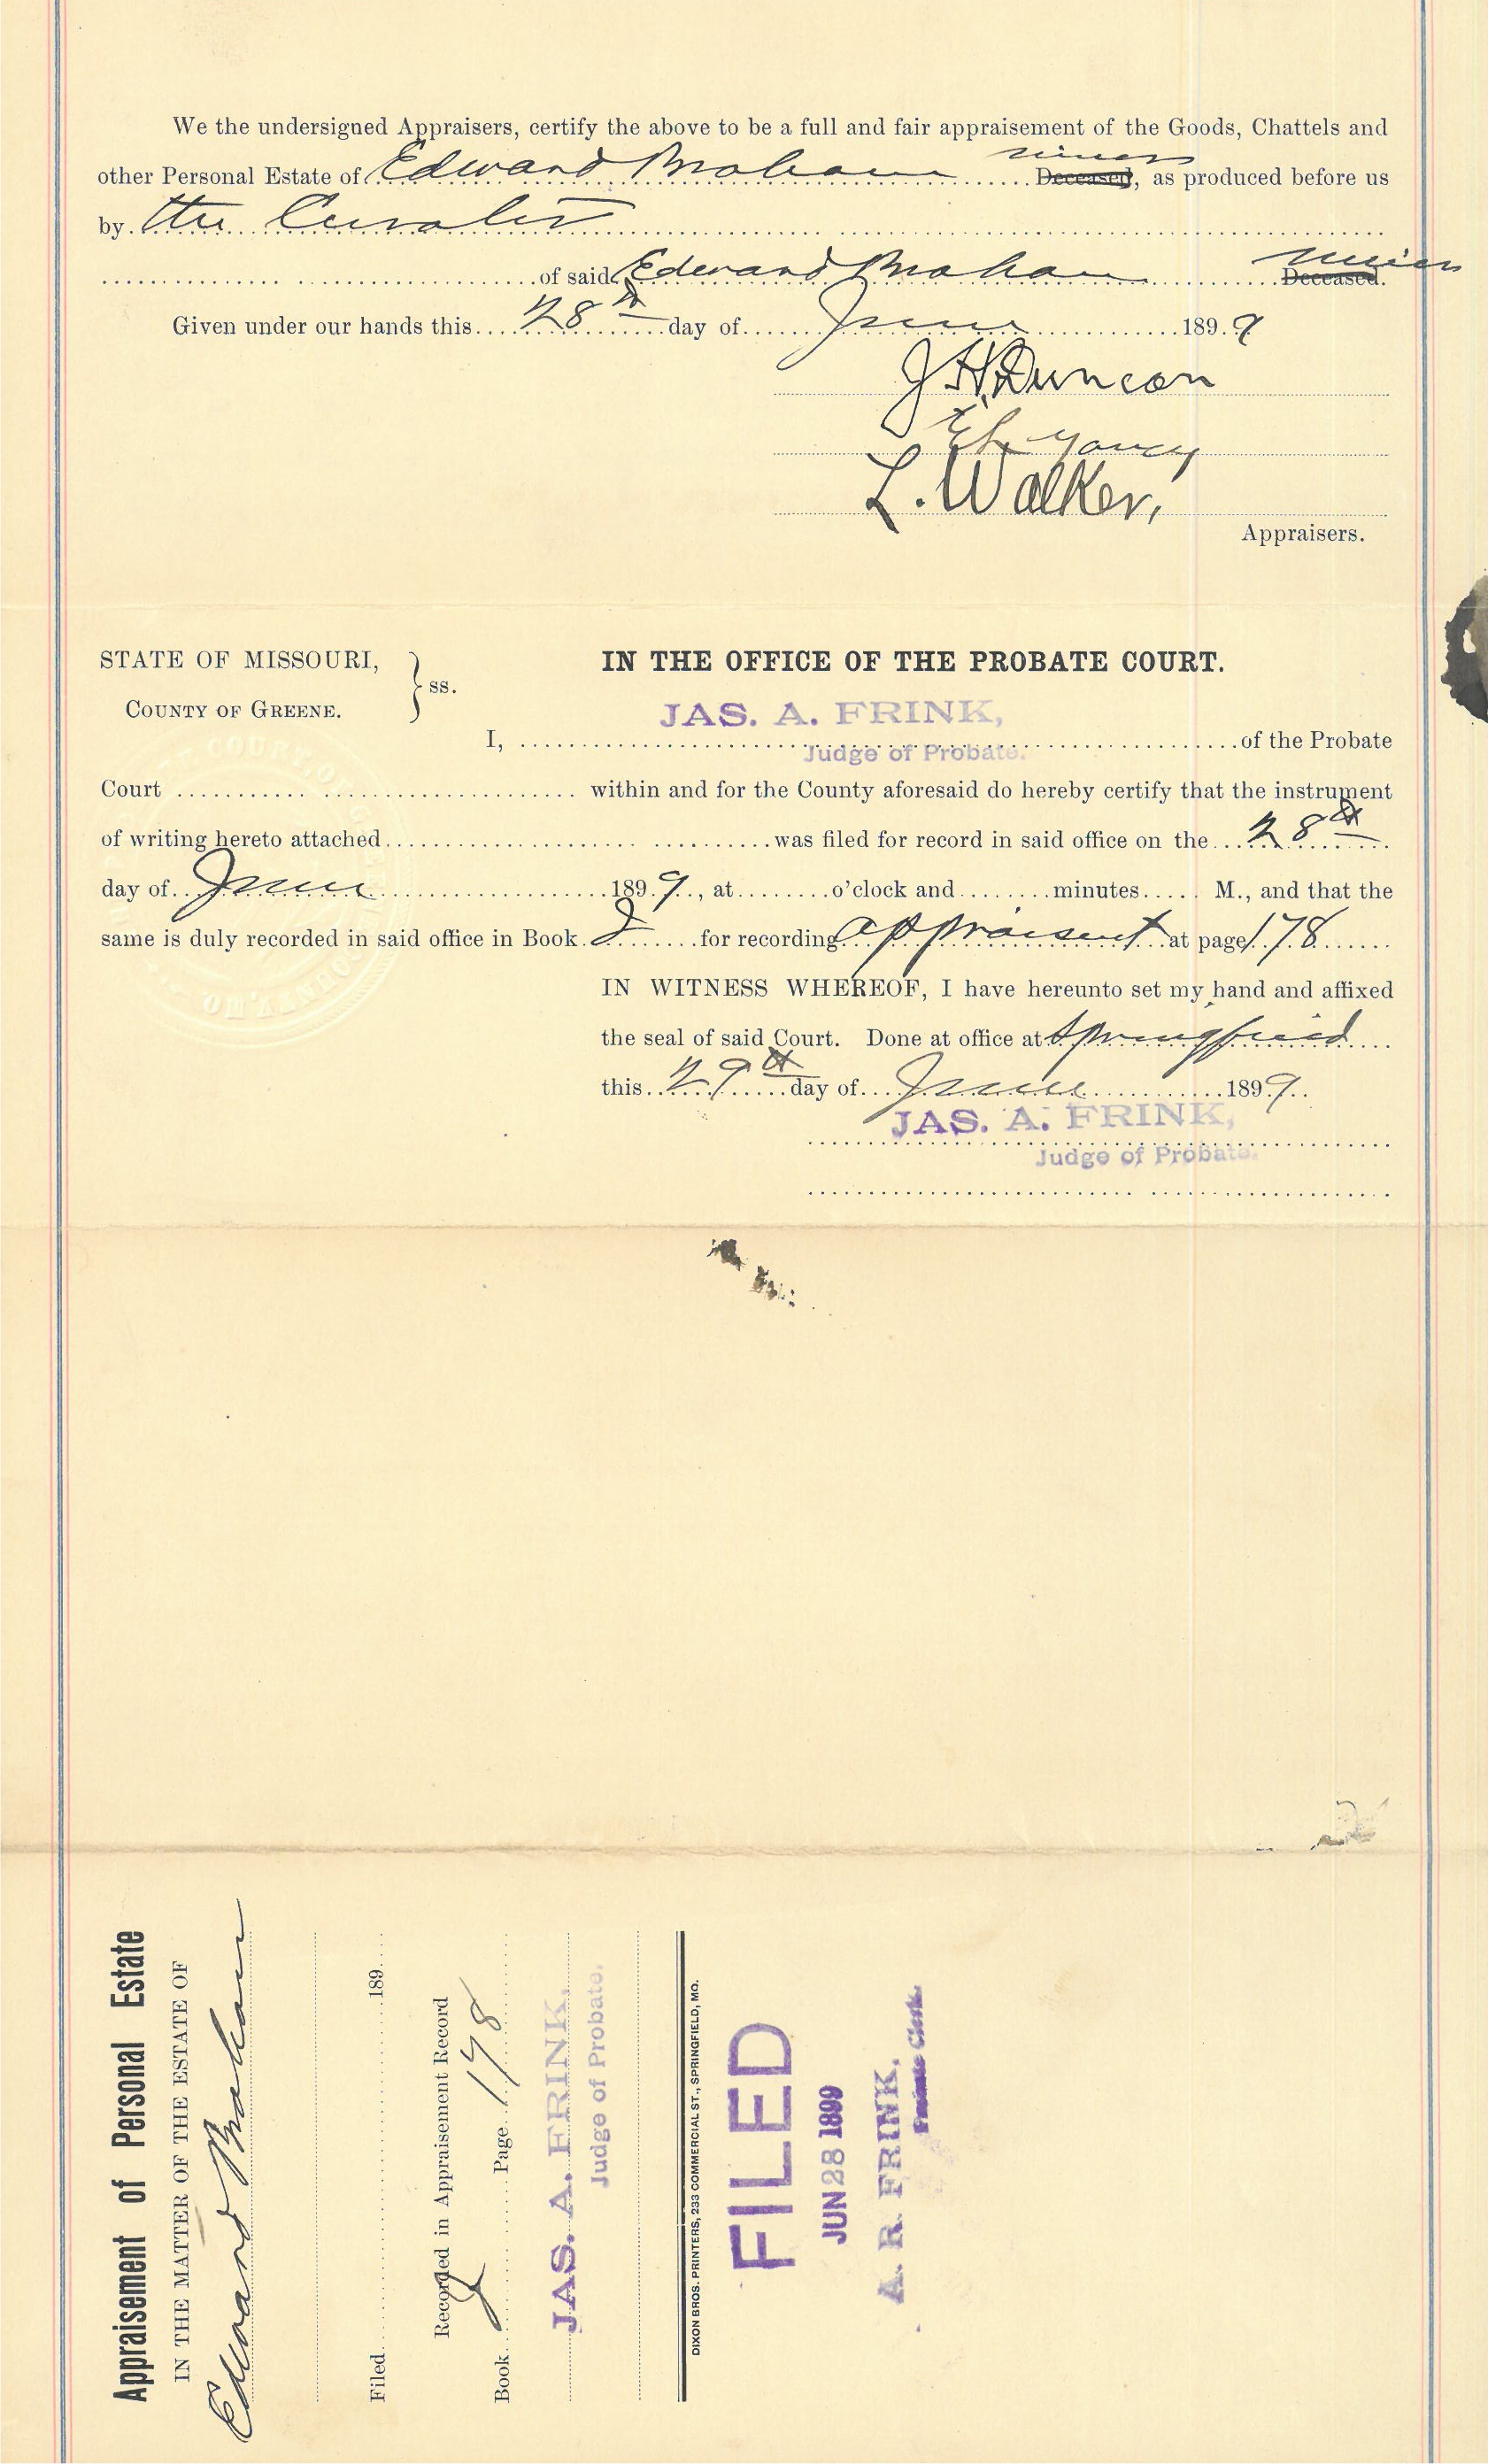 We the undersigned Appraisers, certify the above to be a full and fair appraisement of the Goods, Chattels and
minor
other Personal Estate of Edward Mahan Deceased, as produced before us
by the Curator
of said Edward Mahan Deceased. minor
Given under our hands this 28th day of June 1899
J H Duncan
Yancy
L. Walker,
Appraisers.
STATE OF MISSOURI,
COUNTY OF GREENE.
ss.
IN THE OFFICE OF THE PROBATE COURT.
JAS. A. FRINK,
I, of the Probate
Judge of Probate.
Court within and for the County aforesaid do hereby certify that the instrument
of writing hereto attached was filed for record in said office on the 28th
day of June 1899, at o'clock and minutes M., and that the
same is duly recorded in said office in Book for recording appraisemt at page 178
IN WITNESS WHEREOF, I have hereunto set my hand and affixed
the seal of said Court. Done at office at Springfield
this 29th day of June 1899
JAS. A. FRINK,
Judge of Probate.
Appraisement of Personal Estate
IN THE MATTER OF THE ESTATE OF
Edward Mahan
Filed 189
Recorded in Appraisement Record
Book Page 178
JAS. A. FRINK,
Judge of Probate.
DIXON BROS. PRINTERS, 233 COMMERCIAL ST., SPRINGFIELD, MO.
FILED
JUN 28 1899
A. R. FRINK,
Probate Clerk.